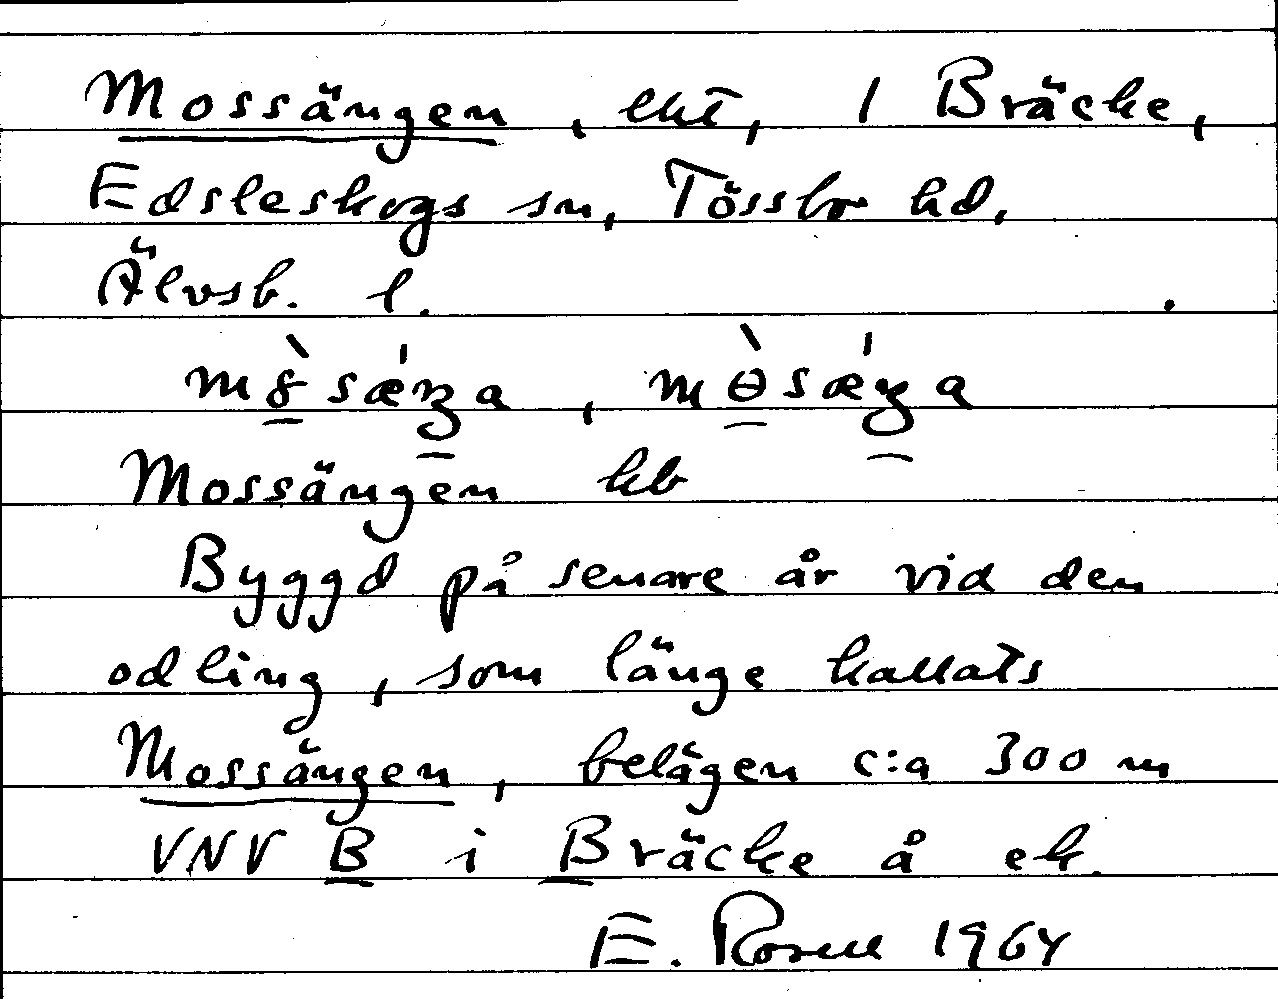 Mossängen, lht, 1 Bräcke,
Edsleskogs sn, Tössbo hd,
Älvsb. l.
Mossängen kb
Byggd på senare år vid den
odling, som länge kallats
Mossängen, belägen c:a 300 m
VNV B i Bräcke å ek.
E. Rosell 1964